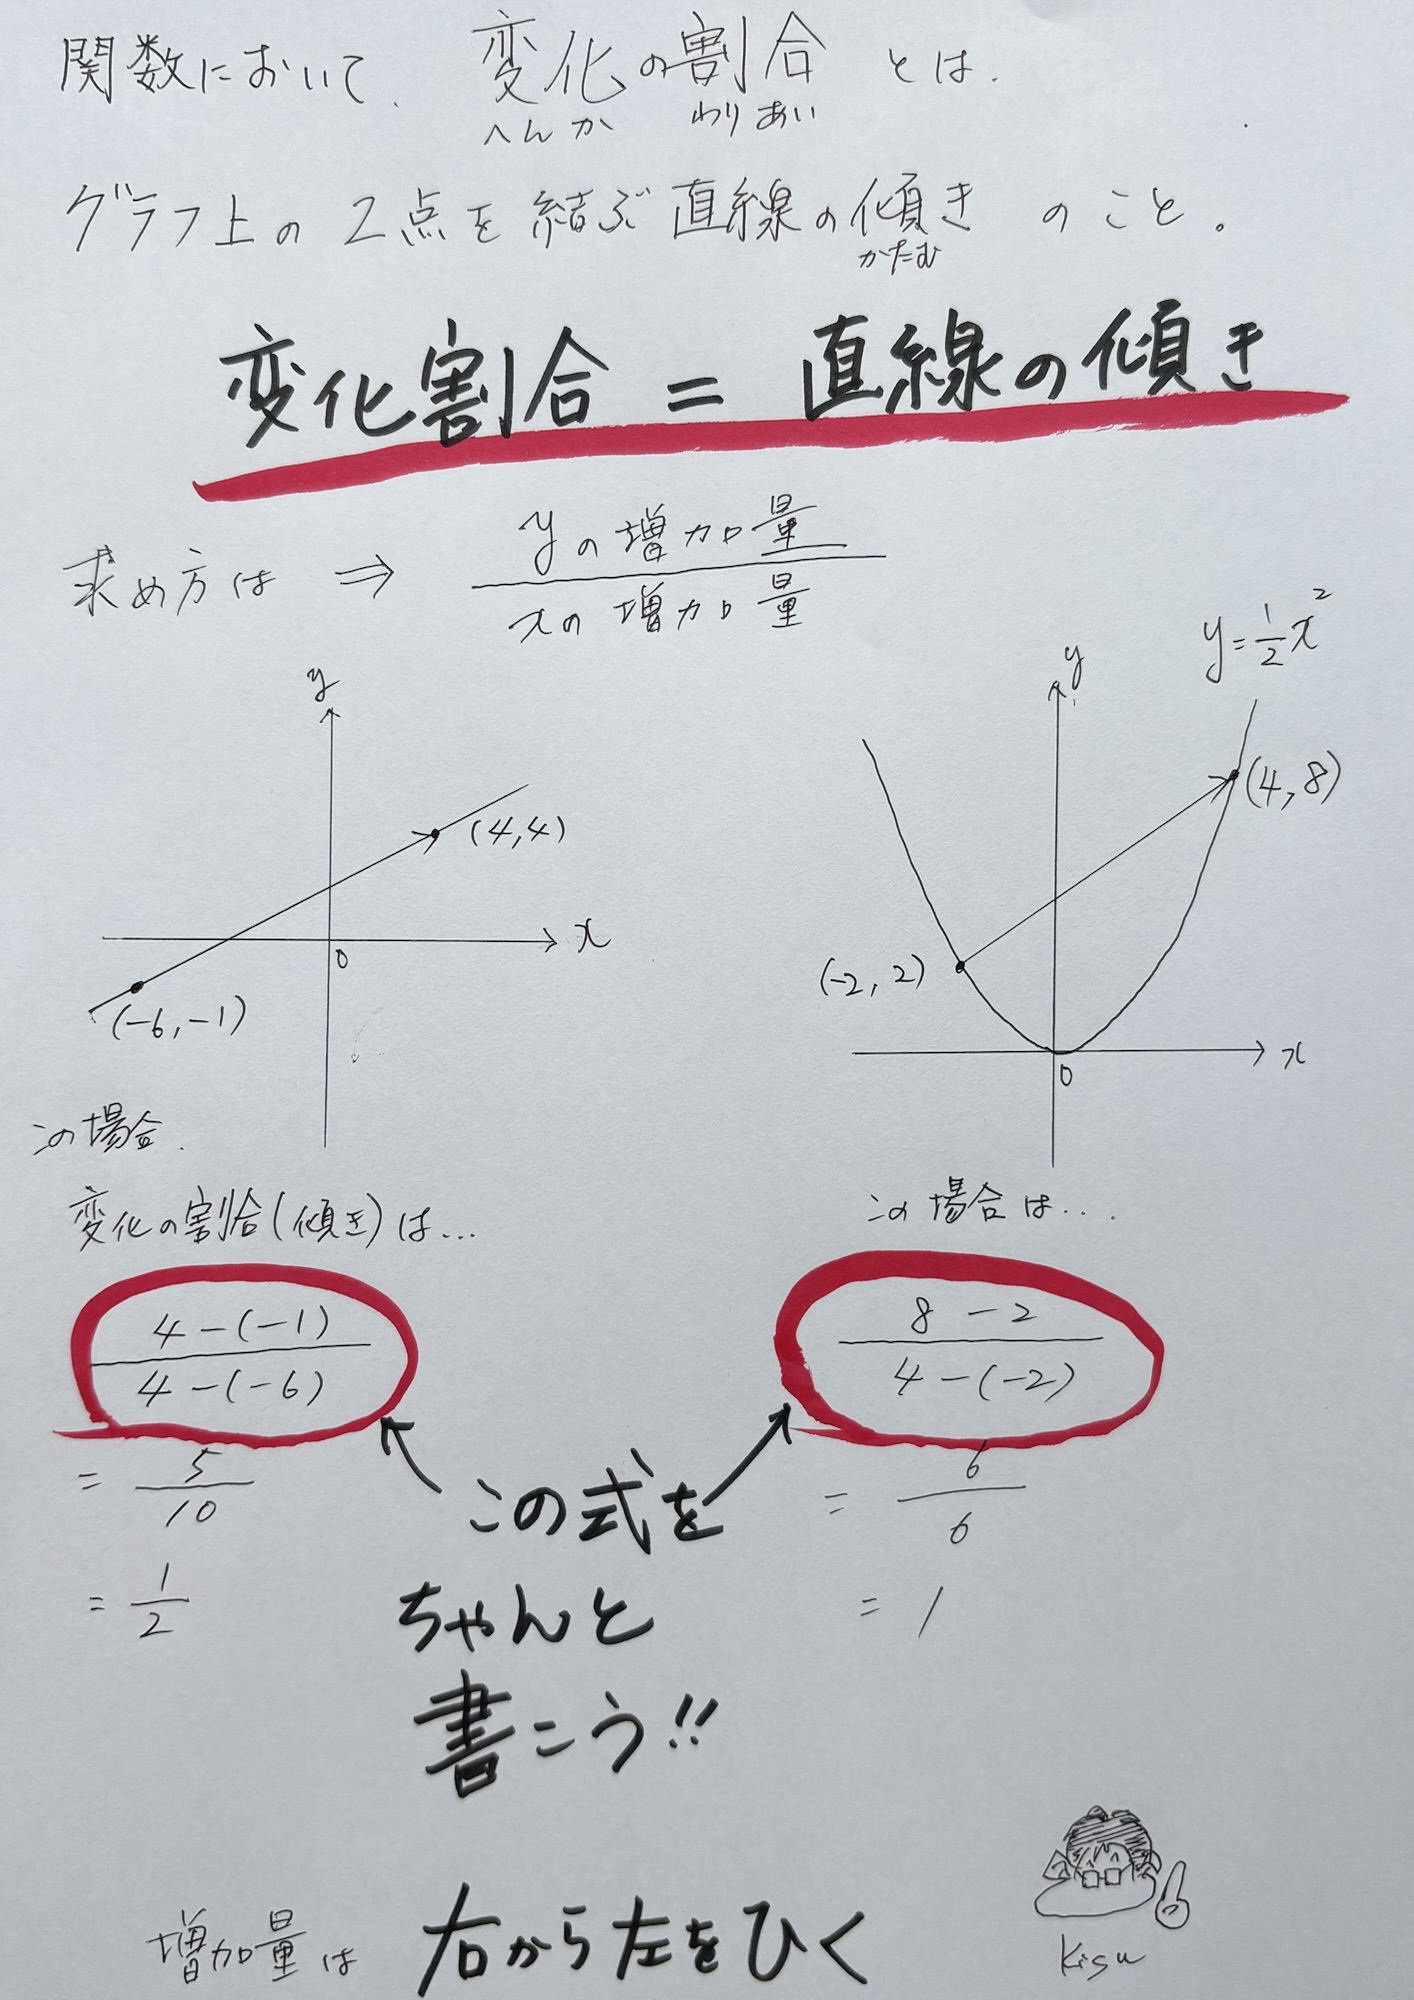 関数において、変化の割合とは、
へんか わりあい
グラフ上の2点を結ぶ直線の傾きのこと。
かたむ
変化割合=直線の傾き
求め方は ⇒ yの増加量
xの増加量
y
(4,4)
x
0
(-6,-1)
y=1/2x²
y
(4,8)
(-2,2)
x
0
この場合、
変化の割合(傾き)は…
4-(-1)
4-(-6)
= 5/10
= 1/2
この場合は…
8-2
4-(-2)
= 6/6
= 1
この式を
ちゃんと
書こう!!
増加量は 右から左をひく
Kisu